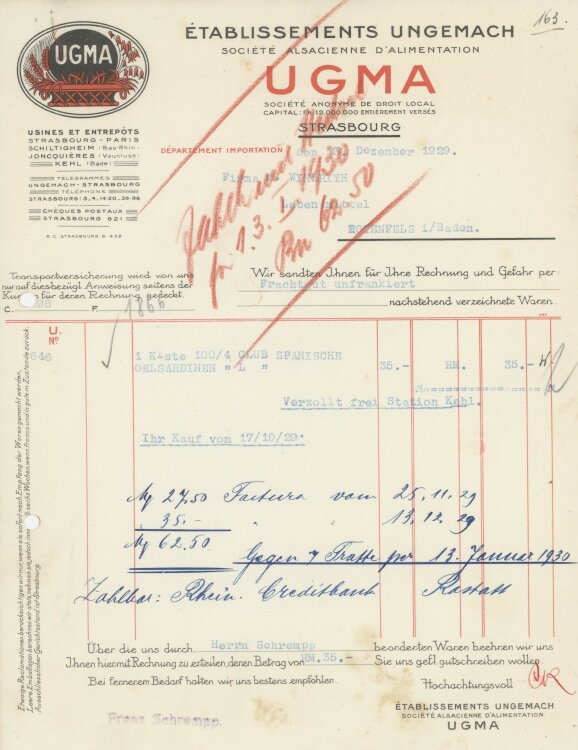 163.
UGMA
ÉTABLISSEMENTS UNGEMACH
SOCIÉTÉ ALSACIENNE D'ALIMENTATION
UGMA
SOCIÉTÉ ANONYME DE DROIT LOCAL
CAPITAL: Fs 12.000.000 ENTIÈREMENT VERSÉS
STRASBOURG
USINES ET ENTREPÔTS
STRASBOURG - PARIS
SCHILTIGHEIM (Bas-Rhin)
JONCQUIÈRES (Vaucluse)
KEHL (Bade)
TÉLÉGRAMMES
UNGEMACH-STRASBOURG
TÉLÉPHONE
STRASBOURG: 3,4,14-20,39-96
CHÈQUES POSTAUX
STRASBOURG 821
R.C. STRASBOURG B 432
DÉPARTEMENT IMPORTATION den 13. Dezember 1929.
Firma
Lebensmittel
ROTENFELS i/Baden.
1.3. 1930
62.50
Transportversicherung wird von uns
nur auf diesbezügl. Anweisung seitens der
Kunden für deren Rechnung gedeckt.
C. F. 1866
Wir sandten Ihnen für Ihre Rechnung und Gefahr per:
Frachtgut unfrankiert
nachstehend verzeichnete Waren.
U.
No
646
1 Kiste 100/4 CLUB SPANISCHE 35.- RM. 35.-
OELSARDINEN "L"
Verzollt frei Station Kehl.
Ihr Kauf vom 17/10/29.
27.50 Factura vom 25.11.29
" 35.- " " 13.12.29
62.50 Gegen Tratte per 13. Januar 1930
Zahlbar: Rhein. Creditbank Rastatt
Etwaige Reclamationen berücksichtigen wir nur, wenn sie sofort nach Empfang der Waren gemacht werden.
Leere Emballagen berechnen wir
Ausschliesslicher Gerichtsstand ist Strasbourg.
Über die uns durch Herrn Schrempp beorderten Waren beehren wir uns
Ihnen hiermit Rechnung zu erteilen, deren Betrag von RM.35.- Sie uns gefl. gutschreiben wollen.
Bei fernerem Bedarf halten wir uns bestens empfohlen. Hochachtungsvoll
ÉTABLISSEMENTS UNGEMACH
SOCIÉTÉ ALSACIENNE D'ALIMENTATION
UGMA
Franz Schrempp.